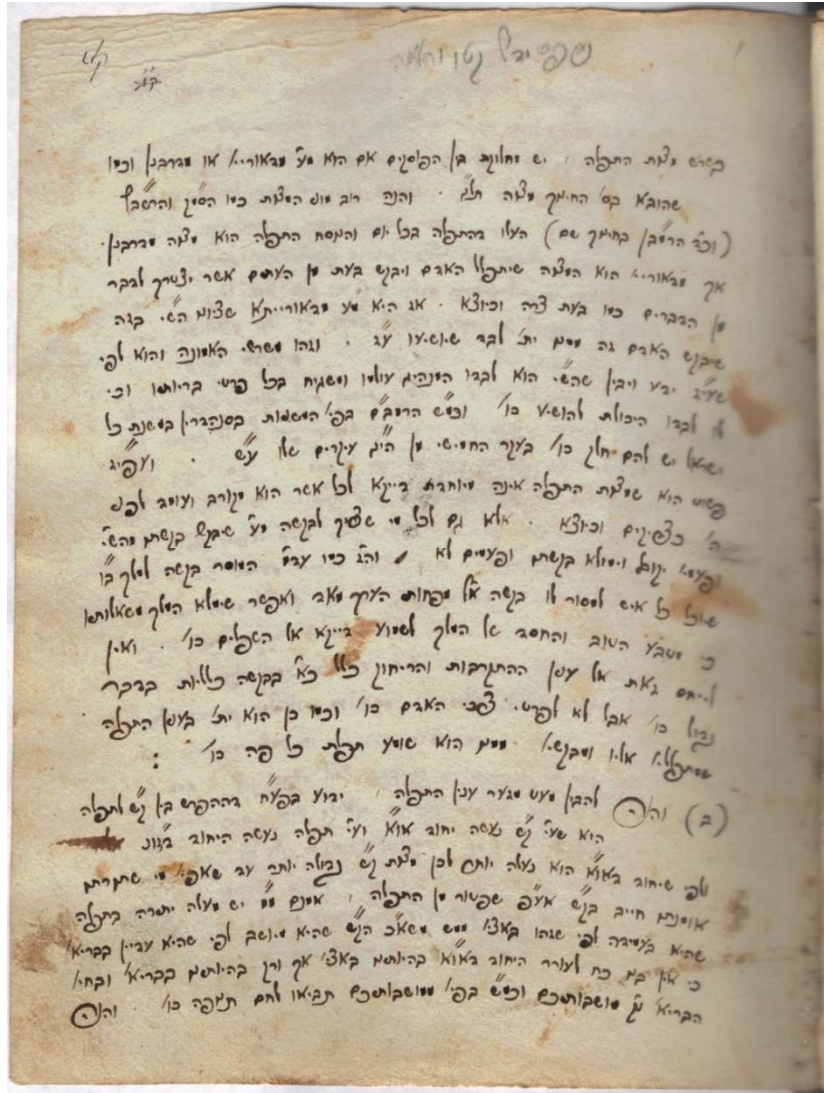 קא
ב״ה
בשרש מצות התפלה , יש מחלוקת בין הפוסקים אם הוא מ״ע מדאוריי׳ או מדרבנן וכמו
שהובא בס׳ החינוך מצוה תל״ג . והנה רוב מוני המצות כמו הסמ״ק והרשב״ץ
(וכ״ד הרמב״ן בחינוך שם) העלו דהתפלה בכל יום ונוסח התפלה הוא מצוה מדרבנן.
אך מדאוריי׳ הוא המצוה שיתפלל האדם ויבקש בעת מן העתים אשר יצטרך לדבר
מן הדברים כמו בעת צרה וכיוצא . אז היא מ״ע מדאורייתא שציונו הש״י בזה
שיבקש האדם זה ממנו ית׳ לבד שיושיעו ע״ז . וזהו משרשי האמונה והוא לפי
שעי״ז ידע ויבין שהש״י הוא לבדו המנהיג עולמו ומשגיח בכל פרטי בריותיו וכי
לו לבדו היכולת להושיע כו׳ וכמ״ש הרמב״ם בפי׳ המשניות בסנהדרין במשנת כל
ישראל יש להם חלק כו׳ בעקר החמישי מן הי״ג עיקרים שלו ע״ש . ועפי״ז
פשוט הוא שמצות התפלה אינה מיוחדת דייקא לכל אשר הוא מקורב ועומד לפני
ה׳ כצדיקים וכיוצא . אלא גם לכל מי שצריך לבקשה מ״ע שיבקש בקשתו מהש״י
ופעמי׳ יקובל וימולא בקשתו ופעמים לא . וה״ז כמו עד״מ המוסר בקשה למלך ב״ו
שיוכל כל איש למסור לו בקשה אף מפחותי הערך מאד ואפשר שימלא המלך משאלותיו
כי מטבע הטוב והחסד של המלך לשמוע דייקא אל השפלים כו׳ . ואין
לייחס זאת אל עניין ההתקרבות והריחוק כלל כ״א בבקשה כלליות בדבר
גדול כו׳ אבל לא לפרטי צרכי האדם כו׳ וכמו כן הוא ית׳ בענין התפלה
שמתפללי׳ אליו ומבקשי׳ ממנו הוא שומע תפלת כל פה כו׳ :
(ב) והנה להבין מעט מזער ענין התפלה , ידוע בפע״ח דההפרש בין ק״ש לתפלה
הוא שע״י ק״ש נעשה יחוד או״א וע״י תפלה נעשה היחוד דזו״נ
ולפי שיחוד דאו״א הוא נעלה יותר לכן מצות ק״ש גדולה יותר עד שאפי׳ מי שתורתם
אומנתם חייב בק״ש אע״פ שפטור מן התפלה , אמנם מ״מ יש מעלה יתירה בתפלה
שהיא בעמידה לפי שזהו באצי׳ ממש משא״כ הק״ש שהיא מיושב לפי שהיא עדיין בבריא׳
כי אין בנו כח לעורר היחוד דאו״א בהיותם באצי׳ אך ורק בהיותם בבריא׳ ובחי׳
הבריא׳ נק׳ מושבותיכם וכמ״ש בפי׳ ממושבותיכם תביאו לחם תנופה כו׳ . והנה